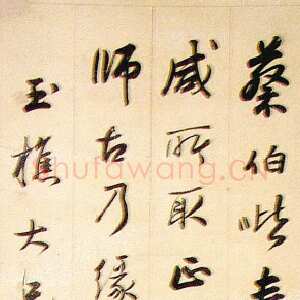 蔡伯喈
咸所取正
師古乃緣
玉樵大
shufawang.cn